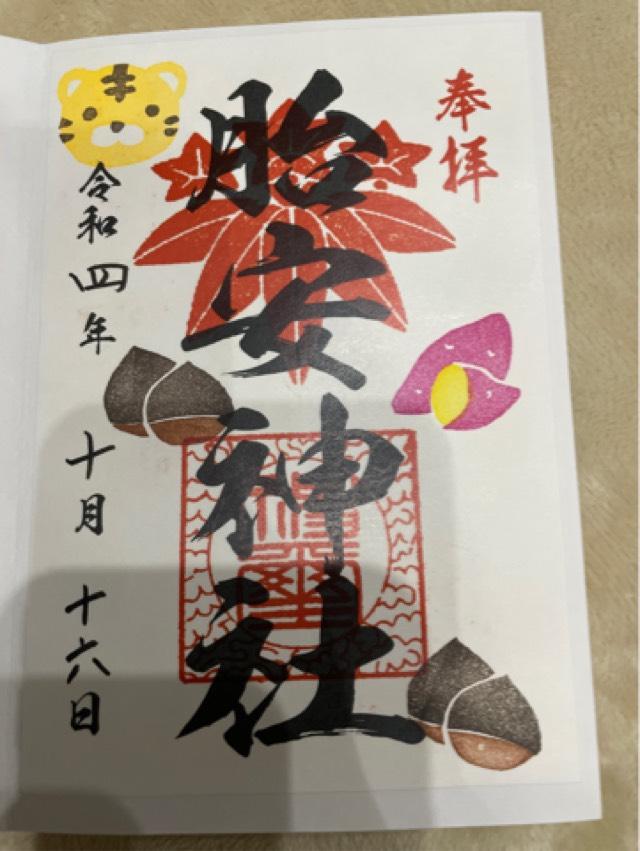 奉拝
胎安神社
令和四年 十月 十六日